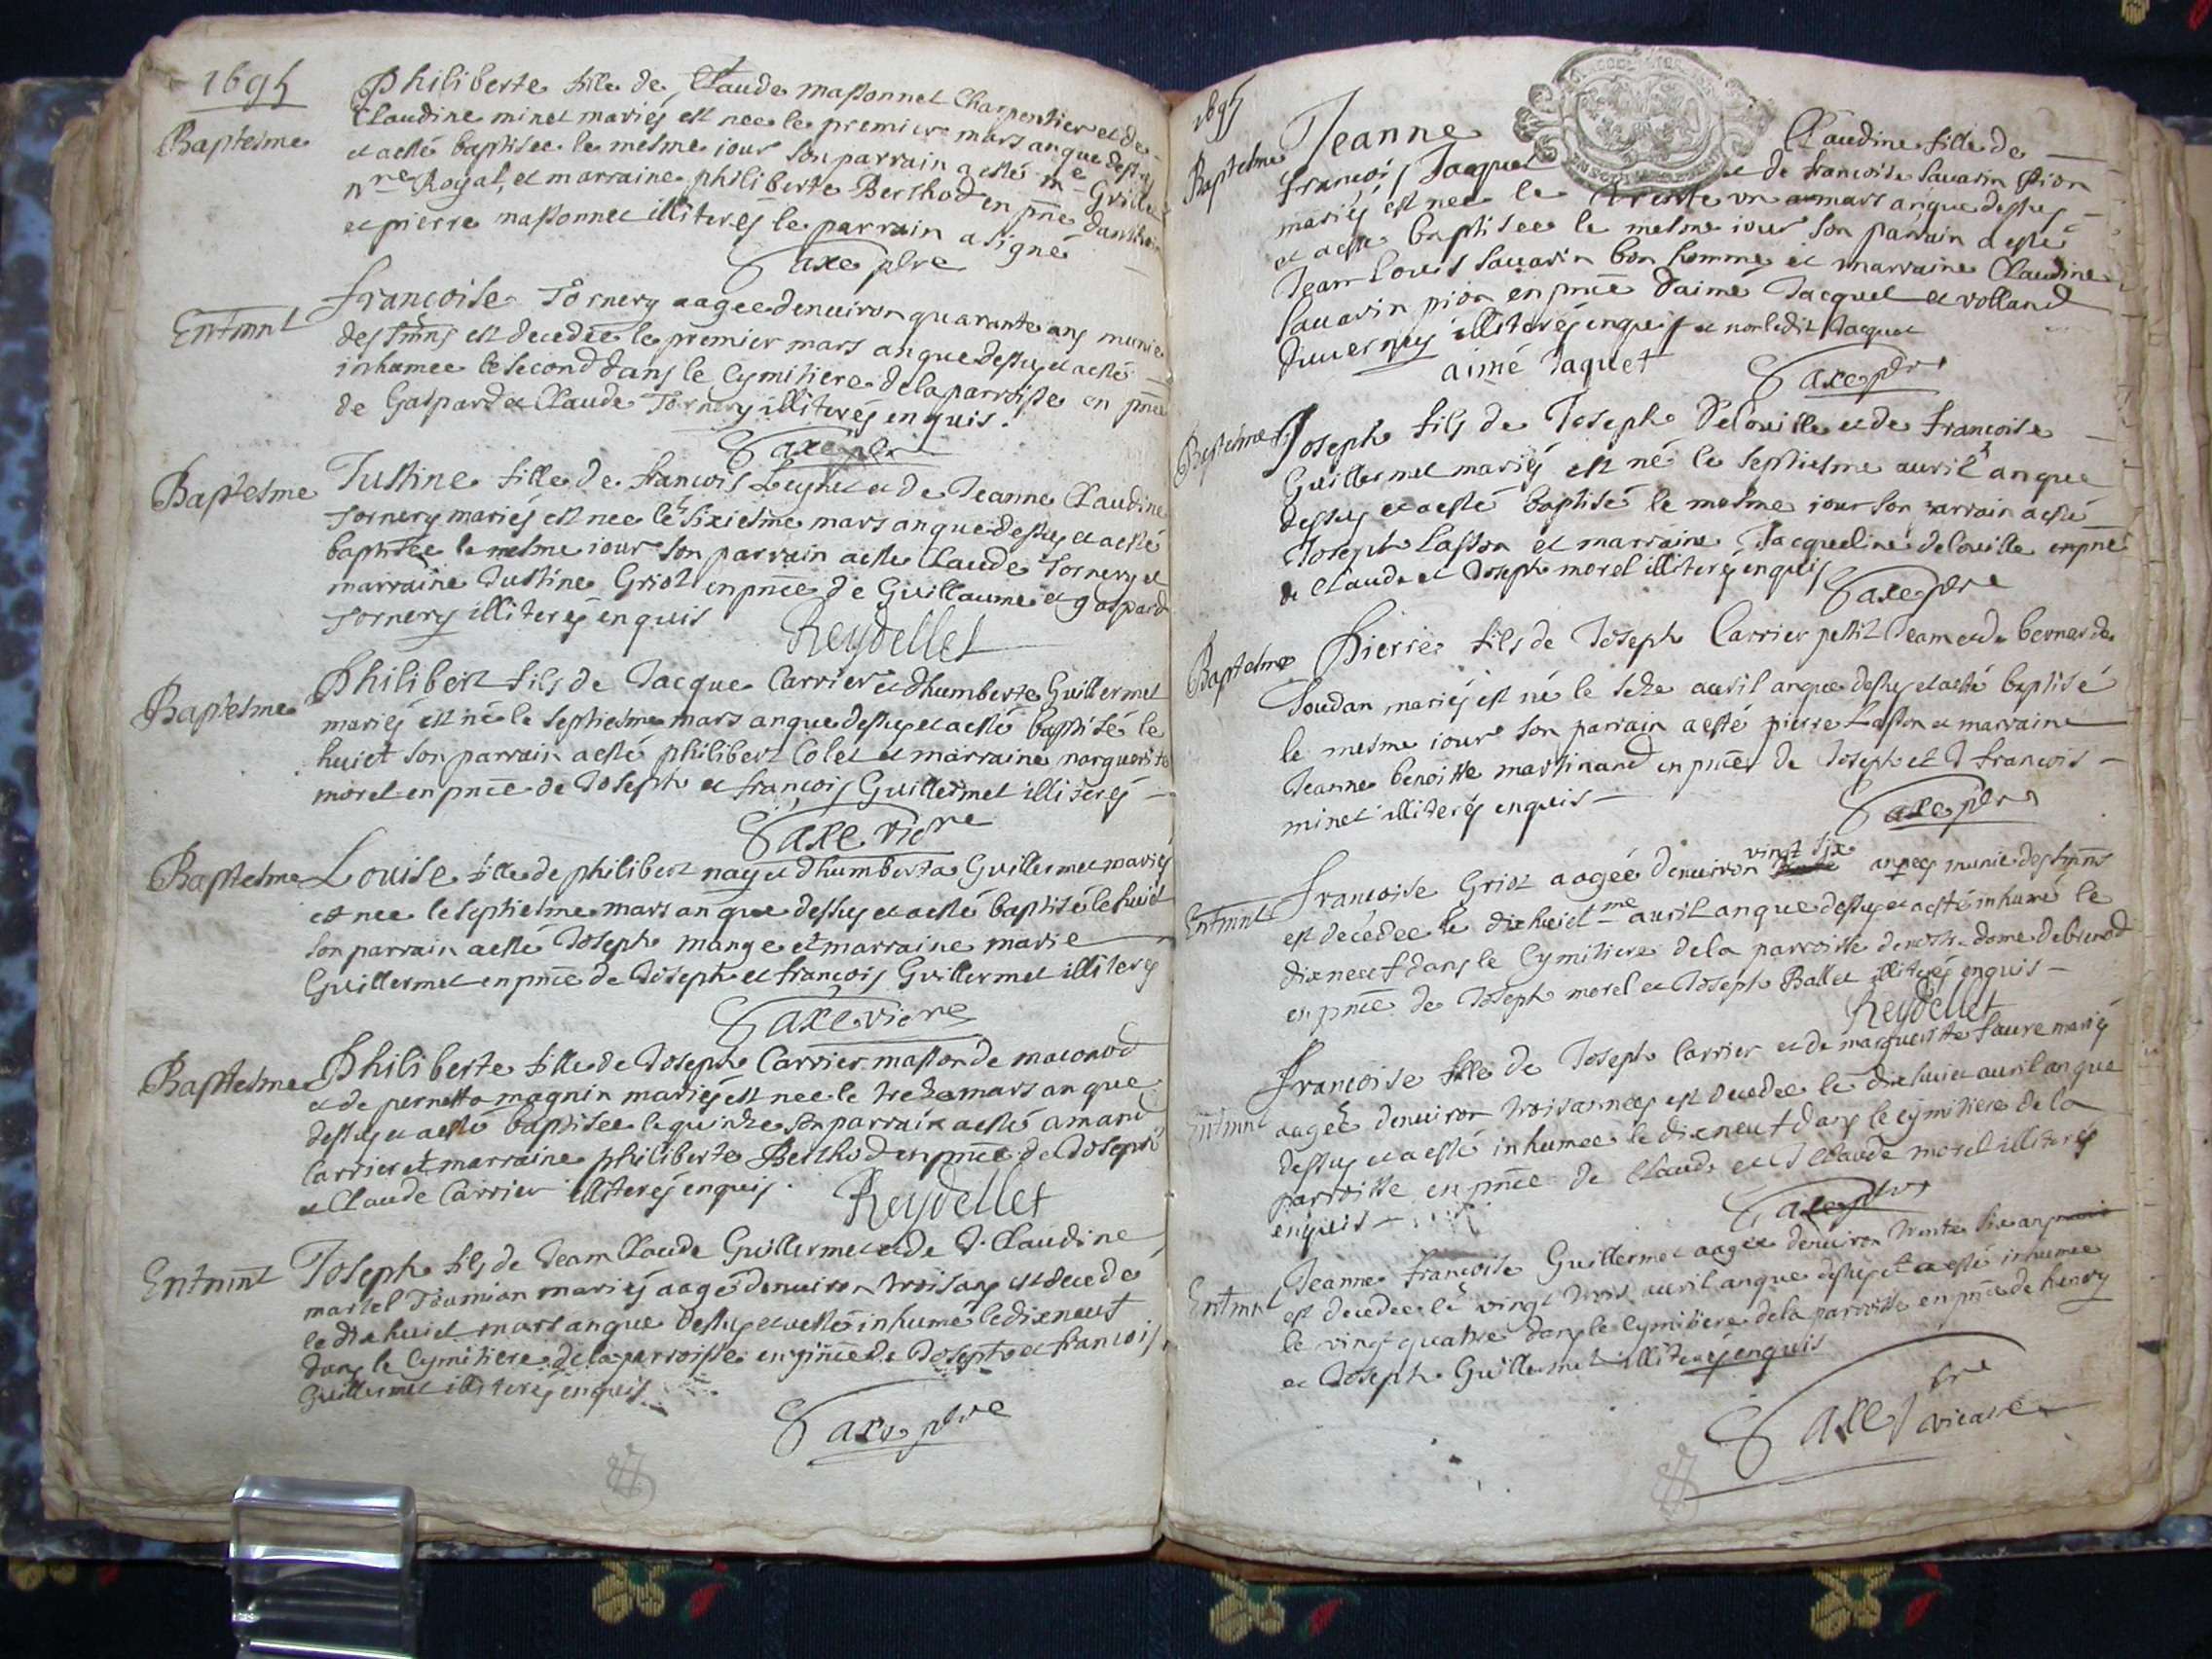 1695
Baptesme
Philiberte fille de Claude massonnet Charpentier et de
Claudine minet mariés est nee le premier mars an que dessus
et a esté baptisee le mesme iour son parrain a esté me
nre Royal, et marraine philiberte Berthod en pnce
et pierre massonnet illiterés le parrain a signé
Saxe pbre
Entmnt
francoise Tornery aagee denuiron quarante ans munie
des Smns est decedée le premier mars an que dessus et a esté
inhumee le second dans le Cymitiere de la parroisse en pnce
de Gaspard et Claude Tornery illiterés enquis.
Saxe pbre
Baptesme
Justine fille de francois et de Jeanne Claudine
Tornery mariés est nee le sixiesme mars an que dessus et a esté
baptisee le mesme iour son parrain a esté Claude Tornery et
marraine Justine Griot en pnce de Guillaume et gaspard
Tornery illiterés enquis
Reydellet
Baptesme
Philibert fils de Jacque Carrier et dhumberte Guillermet
mariés est né le septiesme mars an que dessus et a esté baptisé le
huict son parrain a esté philibert Colet et marraine marguerite
morel en pnce de Joseph et françois Guillermet illiterés
Saxe vicre
Baptesme
Louise fille de philibert nay et dhumberte Guillermet mariés
est nee le septiesme mars an que dessus et a esté baptisé le huict
son parrain a esté Joseph mange et marraine marie
Guillermet en pnce de Joseph et françois Guillermet illiterés
Saxe vicre
Baptesme
Philiberte fille de Joseph Carrier masson de maconod
et de pernette magnin mariés est nee le treze mars an que
dessus et a esté baptisee le quinze son parrain a esté amand
Carrier et marraine philiberte Berthod en pnce de Joseph
et Claude Carrier illiterés enquis.
Reydellet
Entmnt
Joseph fils de Jeam Claude Guillermet et de J. Claudine
martel Toumian mariés aagé denuiron trois ans est decedé
le dix huict mars an que dessus et a esté inhumé le dix neuf
dans le Cymitiere de la parroisse en pnce de Joseph et francois
Guillermet illiterés enquis
Saxe pbre
1695
Baptesme
Jeanne Claudine fille de
francois Jacquet et de francoise Sauarin pion
mariés est nee le trente vn mars an que dessus
et a esté baptisee le mesme iour son parrain a esté
Jean Louis Sauarin bon homme et marraine Claudine
Sauarin pion en pnce daimé Jacquet et volland
duuernay illiterés enquis et non ledit Jacquet
aimé Jaquet
Saxe pbre
Baptesme
Joseph fils de Joseph Delouille et de francoise
Guillermet mariés est né le septiesme auril an que
dessus et a esté baptisé le mesme iour son parrain a esté
Joseph Lasson et marraine Jacqueline delouille en pnce
de Claude et Joseph morel illiterés enquis
Saxe pbre
Baptesme
Pierre fils de Joseph Carrier petit Jeam et de bernarde
Soudan mariés est né le seze auril an que dessus et a esté baptisé
le mesme iour son parrain a esté pierre Lasson et marraine
Jeanne benoitte martinand en pnce de Joseph et J francois
minet illiterés enquis
Saxe pbre
Entmnt
francoise Griot aagée denuiron vingt six années munie des Smns
est decedee le dix huict me auril an que dessus et a esté inhumé le
dix neuf dans le Cymitiere de la parroisse de nostre dame de brenod
en pnce de Joseph morel et Joseph Ballet illiterés enquis
Reydellet
Entmnt
francoise fille de Joseph Carrier et de marguerite faure mariés
aagée denuiron trois années est decedee le dix huict auril an que
dessus et a esté inhumee le dix neuf dans le cymitiere de la
parroisse en pnce de Claude et J Claude morel illiterés
enquis
Saxe pbre
Entmnt
Jeanne francoise Guillermet aagée denuiron trente six an
est decedee le vingt trois auril an que dessus et a esté inhumee
le vingt quatre dans le Cymitiere de la parroisse en pnce de henry
et Joseph Guillermet illiterés enquis
Saxe pbre
vicaire